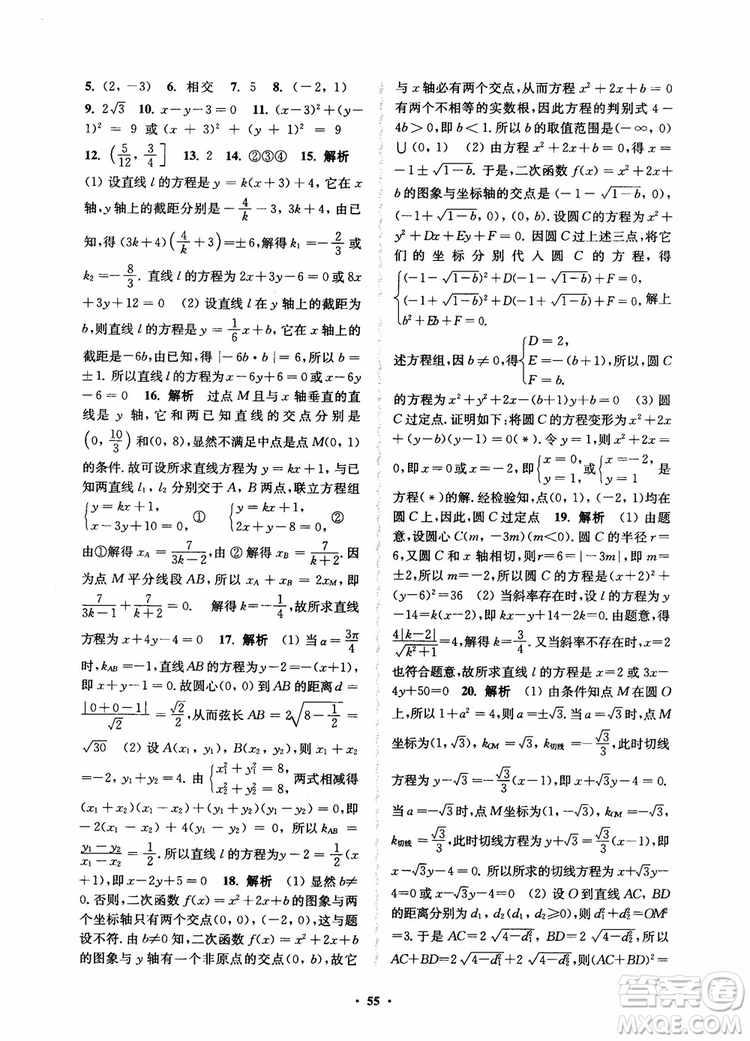 5. (2, -3)　6. 相交　7. 5　8. (-2, 1)
9. 2√3　10. x-y-3=0　11. (x-3)²+(y-
1)² = 9 或(x+3)²+(y-1)² = 9
12. (5/12, 3/4]　13. 2　14. ②③④　15. 解析
(1) 设直线 l 的方程是 y=k(x+3)+4,它在 x
轴,y 轴上的截距分别是-4/k-3, 3k+4,由已
知,得(3k+4)(4/k+3)=±6,解得 k₁=-2/3,
k₂=-8/3. 直线 l 的方程 2x+3y-6=0 或 8x
+3y+12=0　(2) 设直线 l 在 y 轴上的截距为
b,则直线 l 的方程是 y=1/6x+b,它在 x 轴上的
截距是-6b,由已知,得|-6b·b|=6,所以 b=
±1. 所以直线 l 的方程为 x-6y+6=0 或 x-6y
-6=0　16. 解析　过点 M 且与 x 轴垂直的直
线是 y 轴,它和两已知直线的交点分别是
(0, 10/3)和(0, 8),显然不满足中点是点 M(0, 1)
的条件. 故可设所求直线方程为 y=kx+1,与已
知两直线 l₁, l₂ 分别交于 A, B 两点,联立方程组
{y=kx+1, x-3y+10=0, ① {y=kx+1, 2x+y-8=0, ②
由①解得 x_A=7/(3k-1),由②解得 x_B=7/(k+2). 因
为点 M 平分线段 AB,所以 x_A+x_B=2x_M,即
7/(3k-1)+7/(k+2)=0. 解得 k=-1/4,故所求直线
方程为 x+4y-4=0　17. 解析　(1) 当 α=3π/4
时,k_AB=-1,直线 AB 的方程为 y-2=-(x+
1),即 x+y-1=0. 故圆心(0, 0)到 AB 的距离 d=
|0+0-1|/√2=√2/2,从而弦长 AB=2√(8-1/2)=
√30　(2) 设 A(x₁, y₁), B(x₂, y₂),则 x₁+x₂
=-2, y₁+y₂=4. 由{x₁²+y₁²=8, x₂²+y₂²=8, 两式相减得
(x₁+x₂)(x₁-x₂)+(y₁+y₂)(y₁-y₂)=0,即
-2(x₁-x₂)+4(y₁-y₂)=0,所以 k_AB=
(y₁-y₂)/(x₁-x₂)=1/2. 所以直线 l 的方程为 y-2=1/2(x
+1),即 x-2y+5=0　18. 解析　(1) 显然 b≠
0. 否则,二次函数 f(x)=x²+2x+b 的图象与两
个坐标轴只有两个交点(0, 0), (-2, 0),这与题
设不符. 由 b≠0 知,二次函数 f(x)=x²+2x+b
的图象与 y 轴有一个非原点的交点(0, b),故它
与 x 轴必有两个交点,从而方程 x²+2x+b=0
有两个不相等的实数根,因此方程的判别式 4-
4b>0,且 b≠0. 所以 b 的取值范围是(-∞, 0)
∪(0, 1)　(2) 由方程 x²+2x+b=0,得 x=
-1±√(1-b). 于是,二次函数 f(x)=x²+2x+b
的图象与坐标轴的交点是(-1-√(1-b), 0),
(-1+√(1-b), 0), (0, b). 设圆 C 的方程为 x²+
y²+Dx+Ey+F=0. 因圆 C 过上述三点,将它
们的坐标分别代入圆 C 的方程,得
{(-1-√(1-b))²+D(-1-√(1-b))+F=0,
(-1+√(1-b))²+D(-1+√(1-b))+F=0, 解上
b²+Eb+F=0.
述方程组,因 b≠0,得{D=2, E=-(b+1), F=b. 所以,圆 C
的方程为 x²+y²+2x-(b+1)y+b=0　(3) 圆
C 过定点. 证明如下:将圆 C 的方程变形为 x²+
y²+2x-y+b(1-y)=0(*). 令 y=1,所以
x²+y²+2x-y=0,解得{x=0, y=1 或{x=-2, y=1 均满足
方程(*)的解. 经检验知,点(0, 1), (-2, 1)均在
圆 C 上,因此圆 C 过定点　19. 解析　(1) 由题
意,设圆心 C(m, -3m)(m<0). 圆 C 的半径 r=
6,又由圆 C 与 x 轴相切,则 r=6=|-3m|,又 m<0,
所以 m=-2,所以圆 C 的标准方程是(x+2)²+
(y-6)²=36　(2) 当斜率存在时,设直线 l 的方程为
y-14=k(x-2),即 kx-y+14-2k=0. 由题意,得
4|k-2|/√(k²+1)=4,解得 k=3/4. 当斜率不存在时,x=2
也符合题意,故所求直线 l 的方程为 x=2 或 3x-
4y+50=0　20. 解析　(1) 由条件知点 M 在圆 O
上,所以 1+a²=4,则 a=±√3. 当 a=√3时,点 M
坐标为(1, √3), k_OM=√3, k_切线=-√3/3,此时切线
方程为 y-√3=-√3/3(x-1),即 x+√3y-4=0.
当 a=-√3时,点 M 坐标为(1, -√3), k_OM=-√3,
k_切线=√3/3,此时切线方程为 y+√3=√3/3(x-1),即 x
-√3y-4=0. 所以所求的切线方程为 x+√3y-4
=0 或 x-√3y-4=0　(2) 设 O 到直线 AC, BD
的距离分别为 d₁, d₂(d₁, d₂≥0),则 d₁²+d₂²=OM²
=3. 于是 AC=2√(4-d₁²), BD=2√(4-d₂²),所以
AC+BD=2√(4-d₁²)+2√(4-d₂²). 所以(AC+BD)²=
· 55 ·
答案圈
MXQE.COM